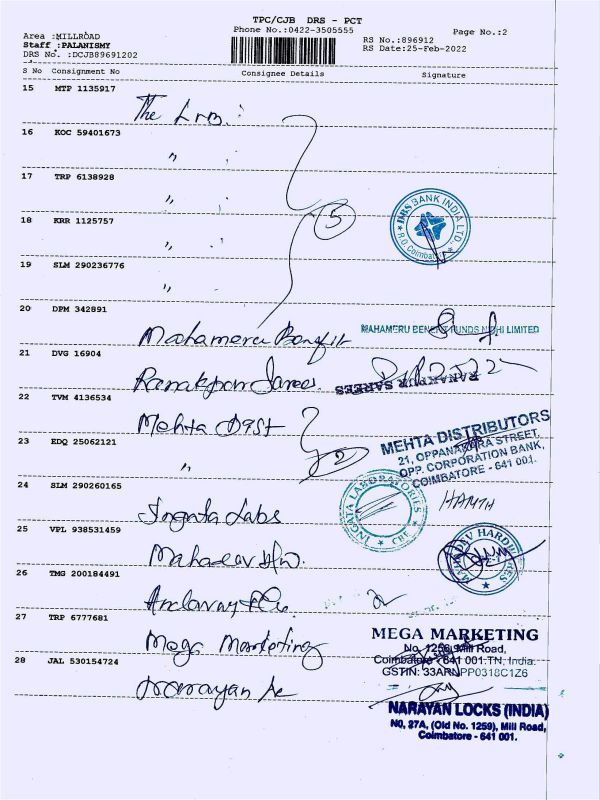 TPC/CJB DRS - PCT
Phone No.:0422-3505555
Page No.:2
Area :MILLROAD
Staff :PALANISMY
DRS No. :DCJB89691202
RS No.:896912
RS Date:25-Feb-2022
S No Consignment No Consignee Details Signature
15 MTP 1135917
The
16 KOC 59401673
"
17 TRP 6138928
"
18 KRR 1125757
"
5
DBS BANK INDIA LTD.
R.O. Coimbatore
19 SLM 290236776
"
20 DPM 342891
Mahameru Benefit
MAHAMERU BENEFIT FUNDS NIDHI LIMITED
21 DVG 16904
Ranakpur Sarees
RANAKPUR SAREES
22 TVM 4136534
Mehta Dist
MEHTA DISTRIBUTORS
21, OPPANAKARA STREET,
OPP. CORPORATION BANK,
COIMBATORE - 641 001.
23 EDQ 25062121
"
2
24 SLM 290260165
Ingata Labs
INGATA LABORATORIES
CBE
25 VPL 938531459
Mahadev H/w.
MAHADEV HARDWARES
26 TMG 200184491
27 TRP 6777681
Mega Marketing
MEGA MARKETING
No. 1256, Mill Road,
Coimbatore - 641 001.TN, India.
GSTIN: 33ARNPP0318C1Z6
28 JAL 530154724
Narayan
NARAYAN LOCKS (INDIA)
N0, 27A, (Old No. 1259), Mill Road,
Coimbatore - 641 001.